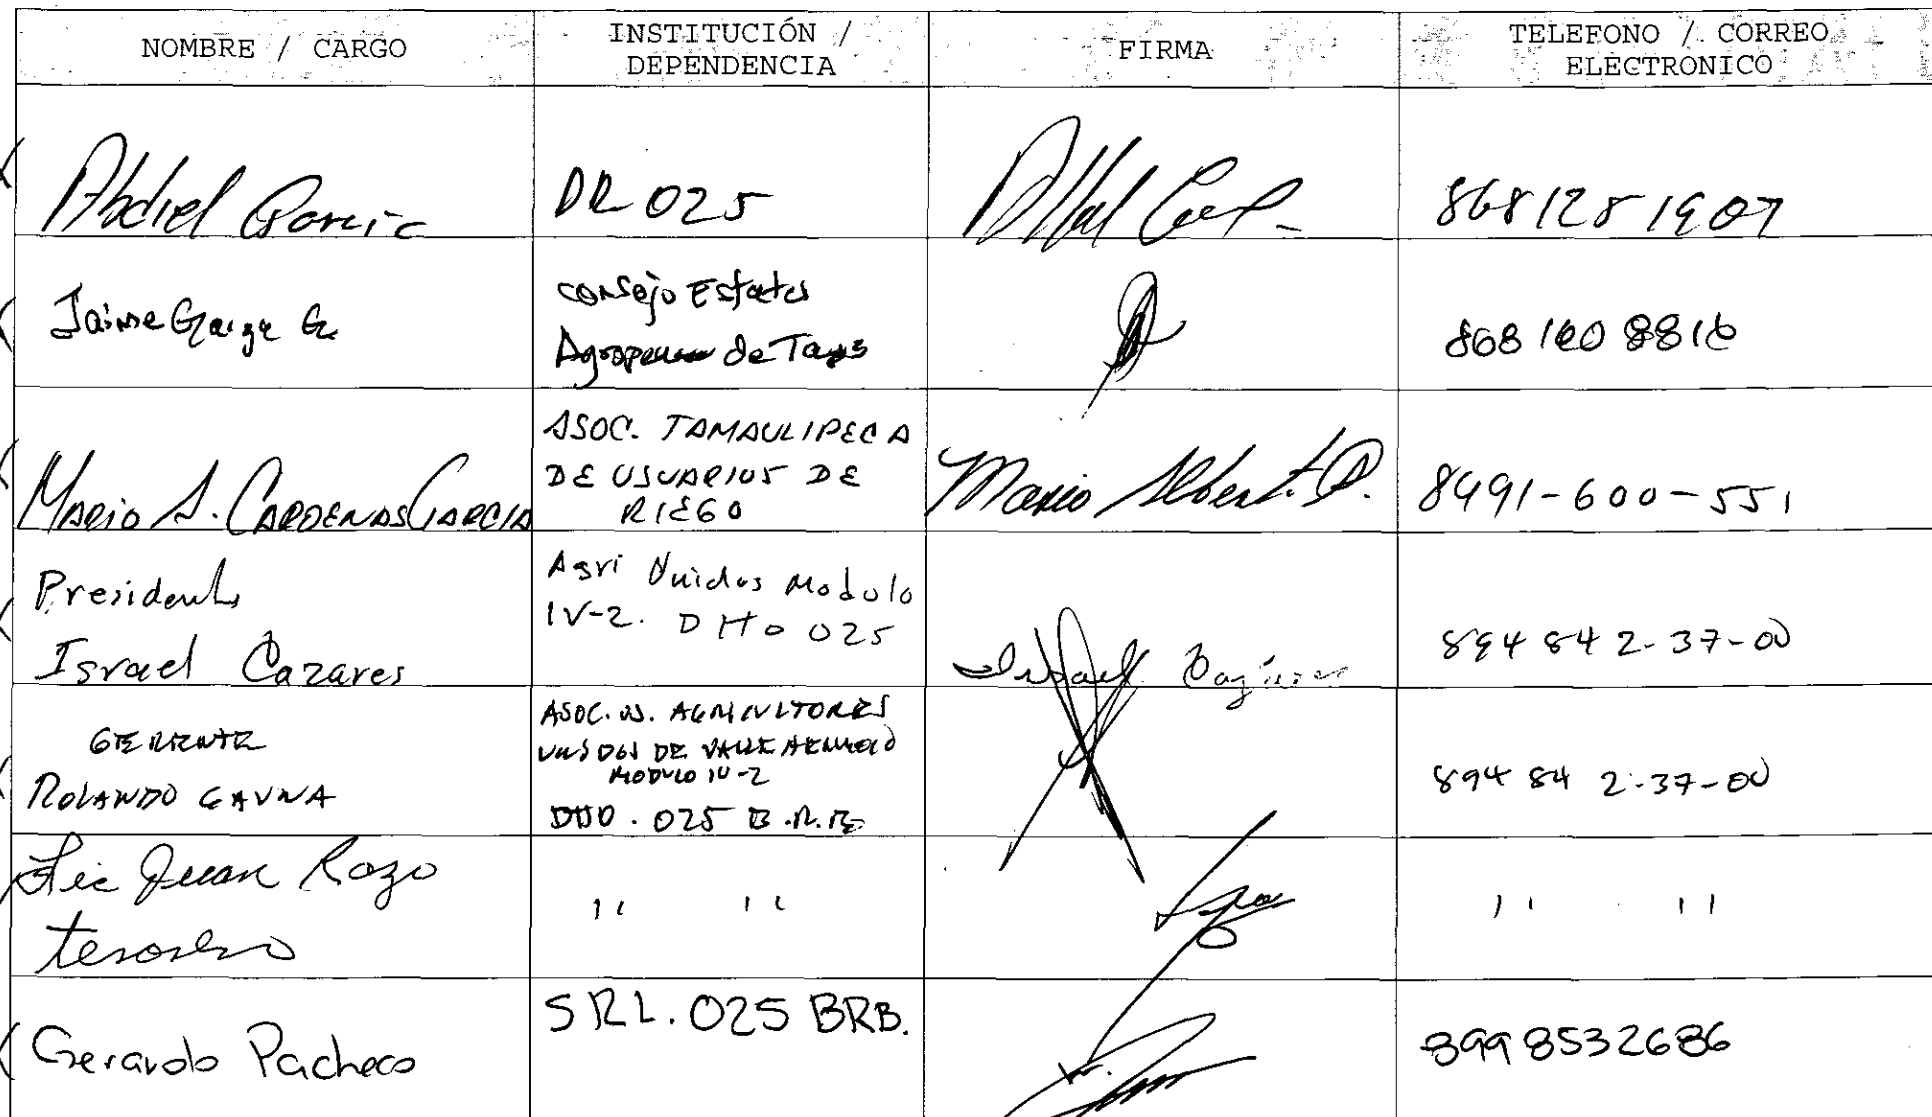 NOMBRE / CARGO
INSTITUCIÓN /
DEPENDENCIA
FIRMA
TELEFONO / CORREO
ELECTRONICO
Abdiel Garcia
DR 025
868 125 1907
Jaime Garza G.
Consejo Estatal
de Tamps
868
MARIO A. CARDENAS GARCIA
ASOC. TAMAULIPECA
DE USUARIOS DE
RIEGO
Mario Albert. C.
8991-600-551
Presidente
Israel Cazares
Agri Unidos Modulo
IV-2. DtTo 025
Israel Cazares
894 842-37-00
GERENTE
ROLANDO GAVNA
ASOC. US. AGRICULTORES
UNIDOS DE VALLE HERMOSO
MODULO IV-2
DTTO. 025 B.R.B.
894 84 2-37-00
Lic Juan Razo
tesorero
" "
" "
Gerardo Pacheco
SRL. 025 BRB.
8998532686